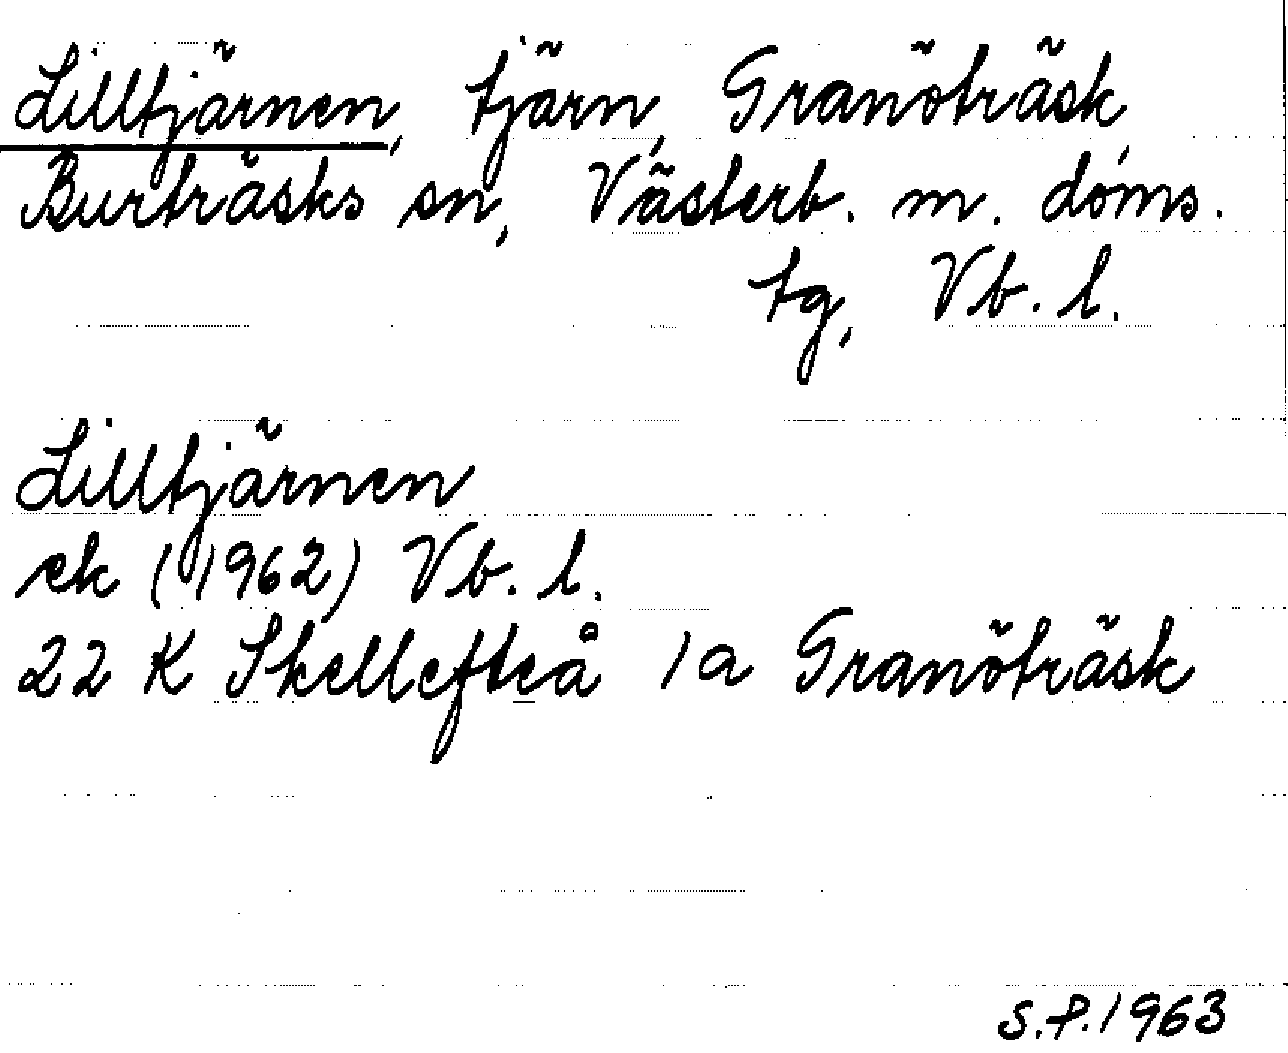 Lilltjärnen, tjärn, Granöträsk,
Burträsks sn, Västerb. m. doms.
tg, Vb. l.
Lilltjärnen
ek (1962) Vb. l.
22 K Skellefteå 1a Granöträsk
S.P. 1963